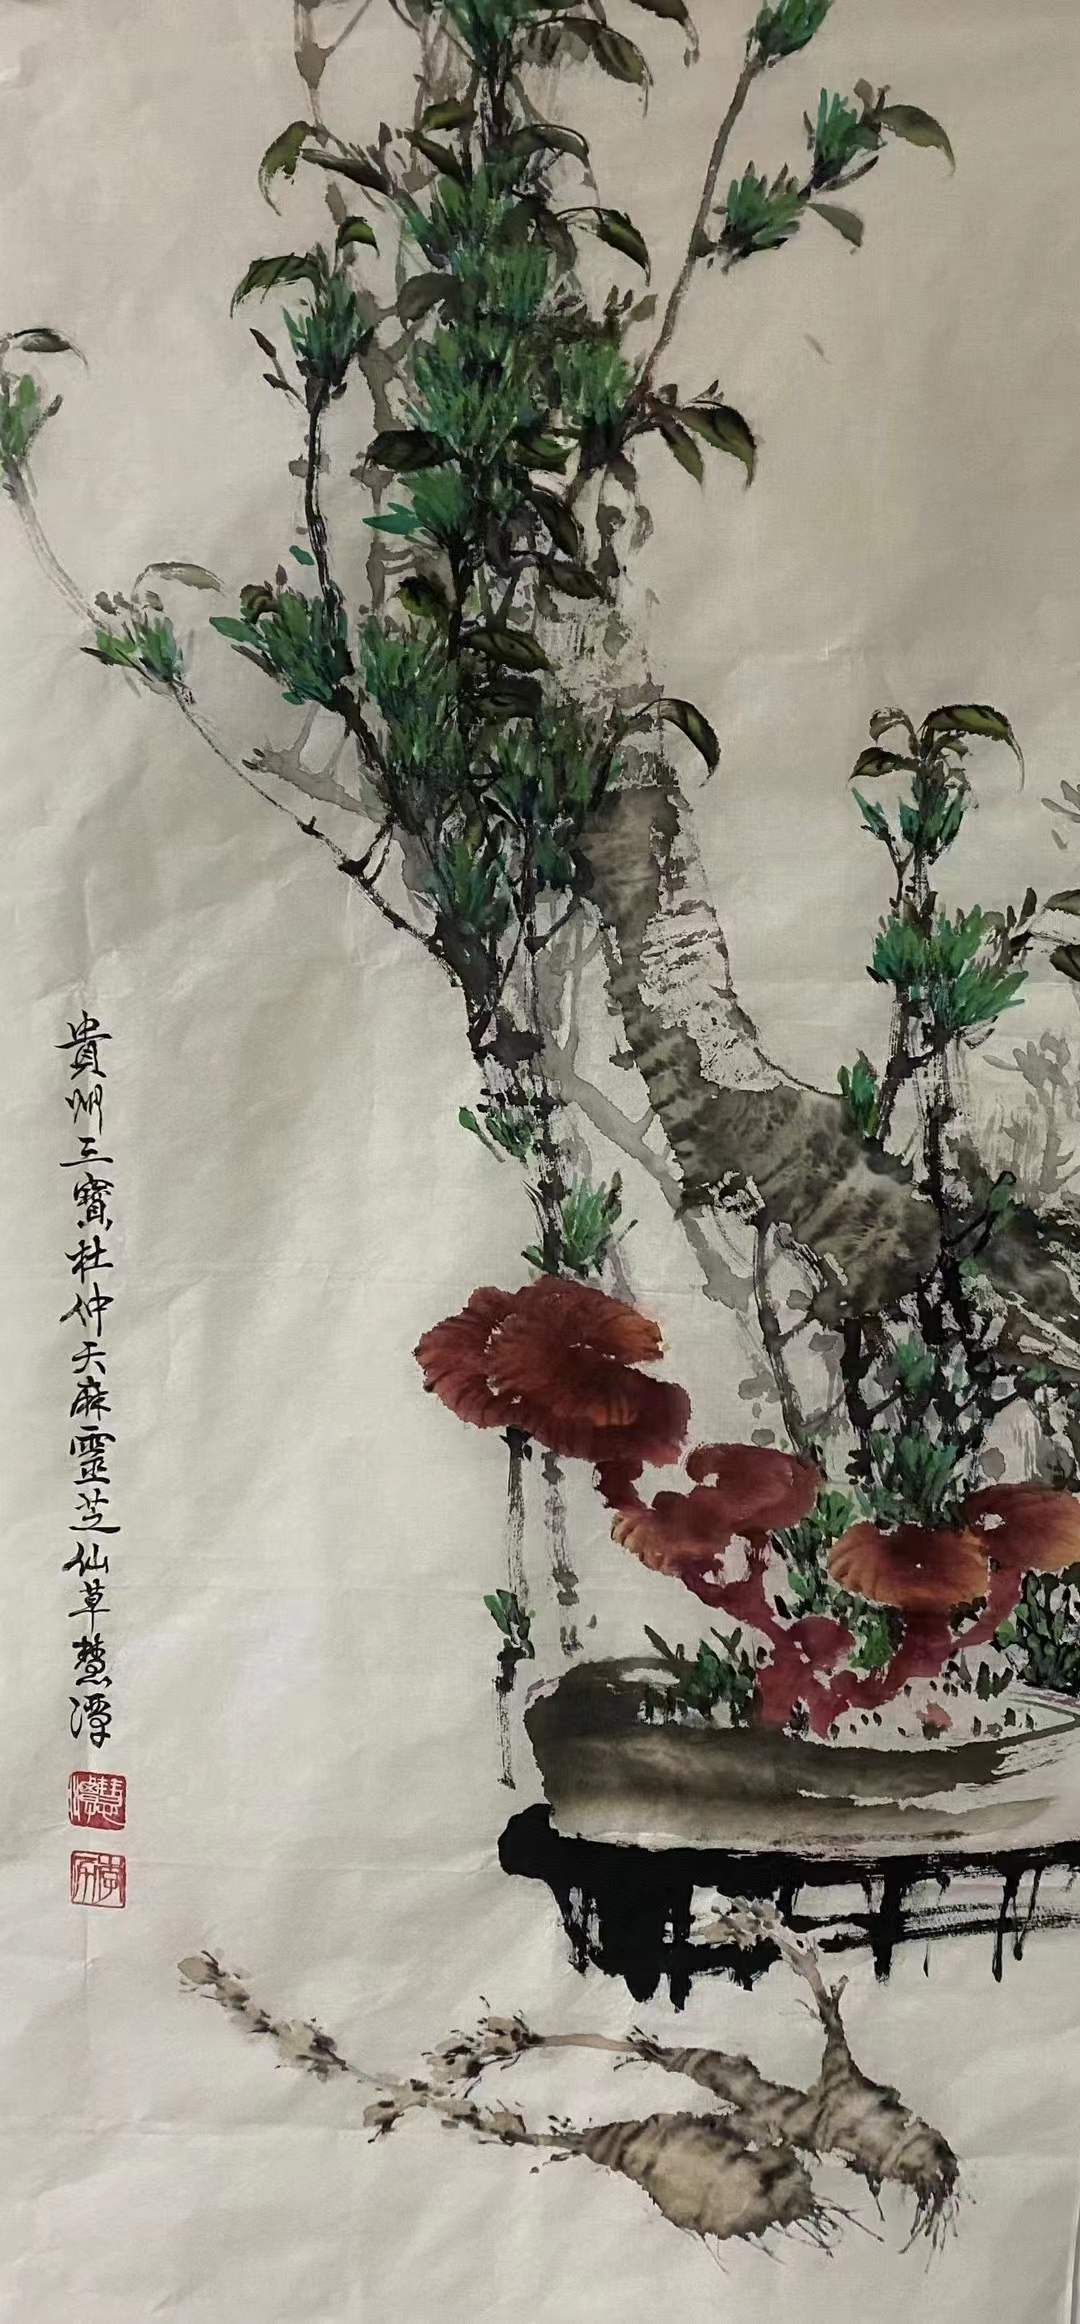 貴州三寳杜仲天麻靈芝仙草慧潭